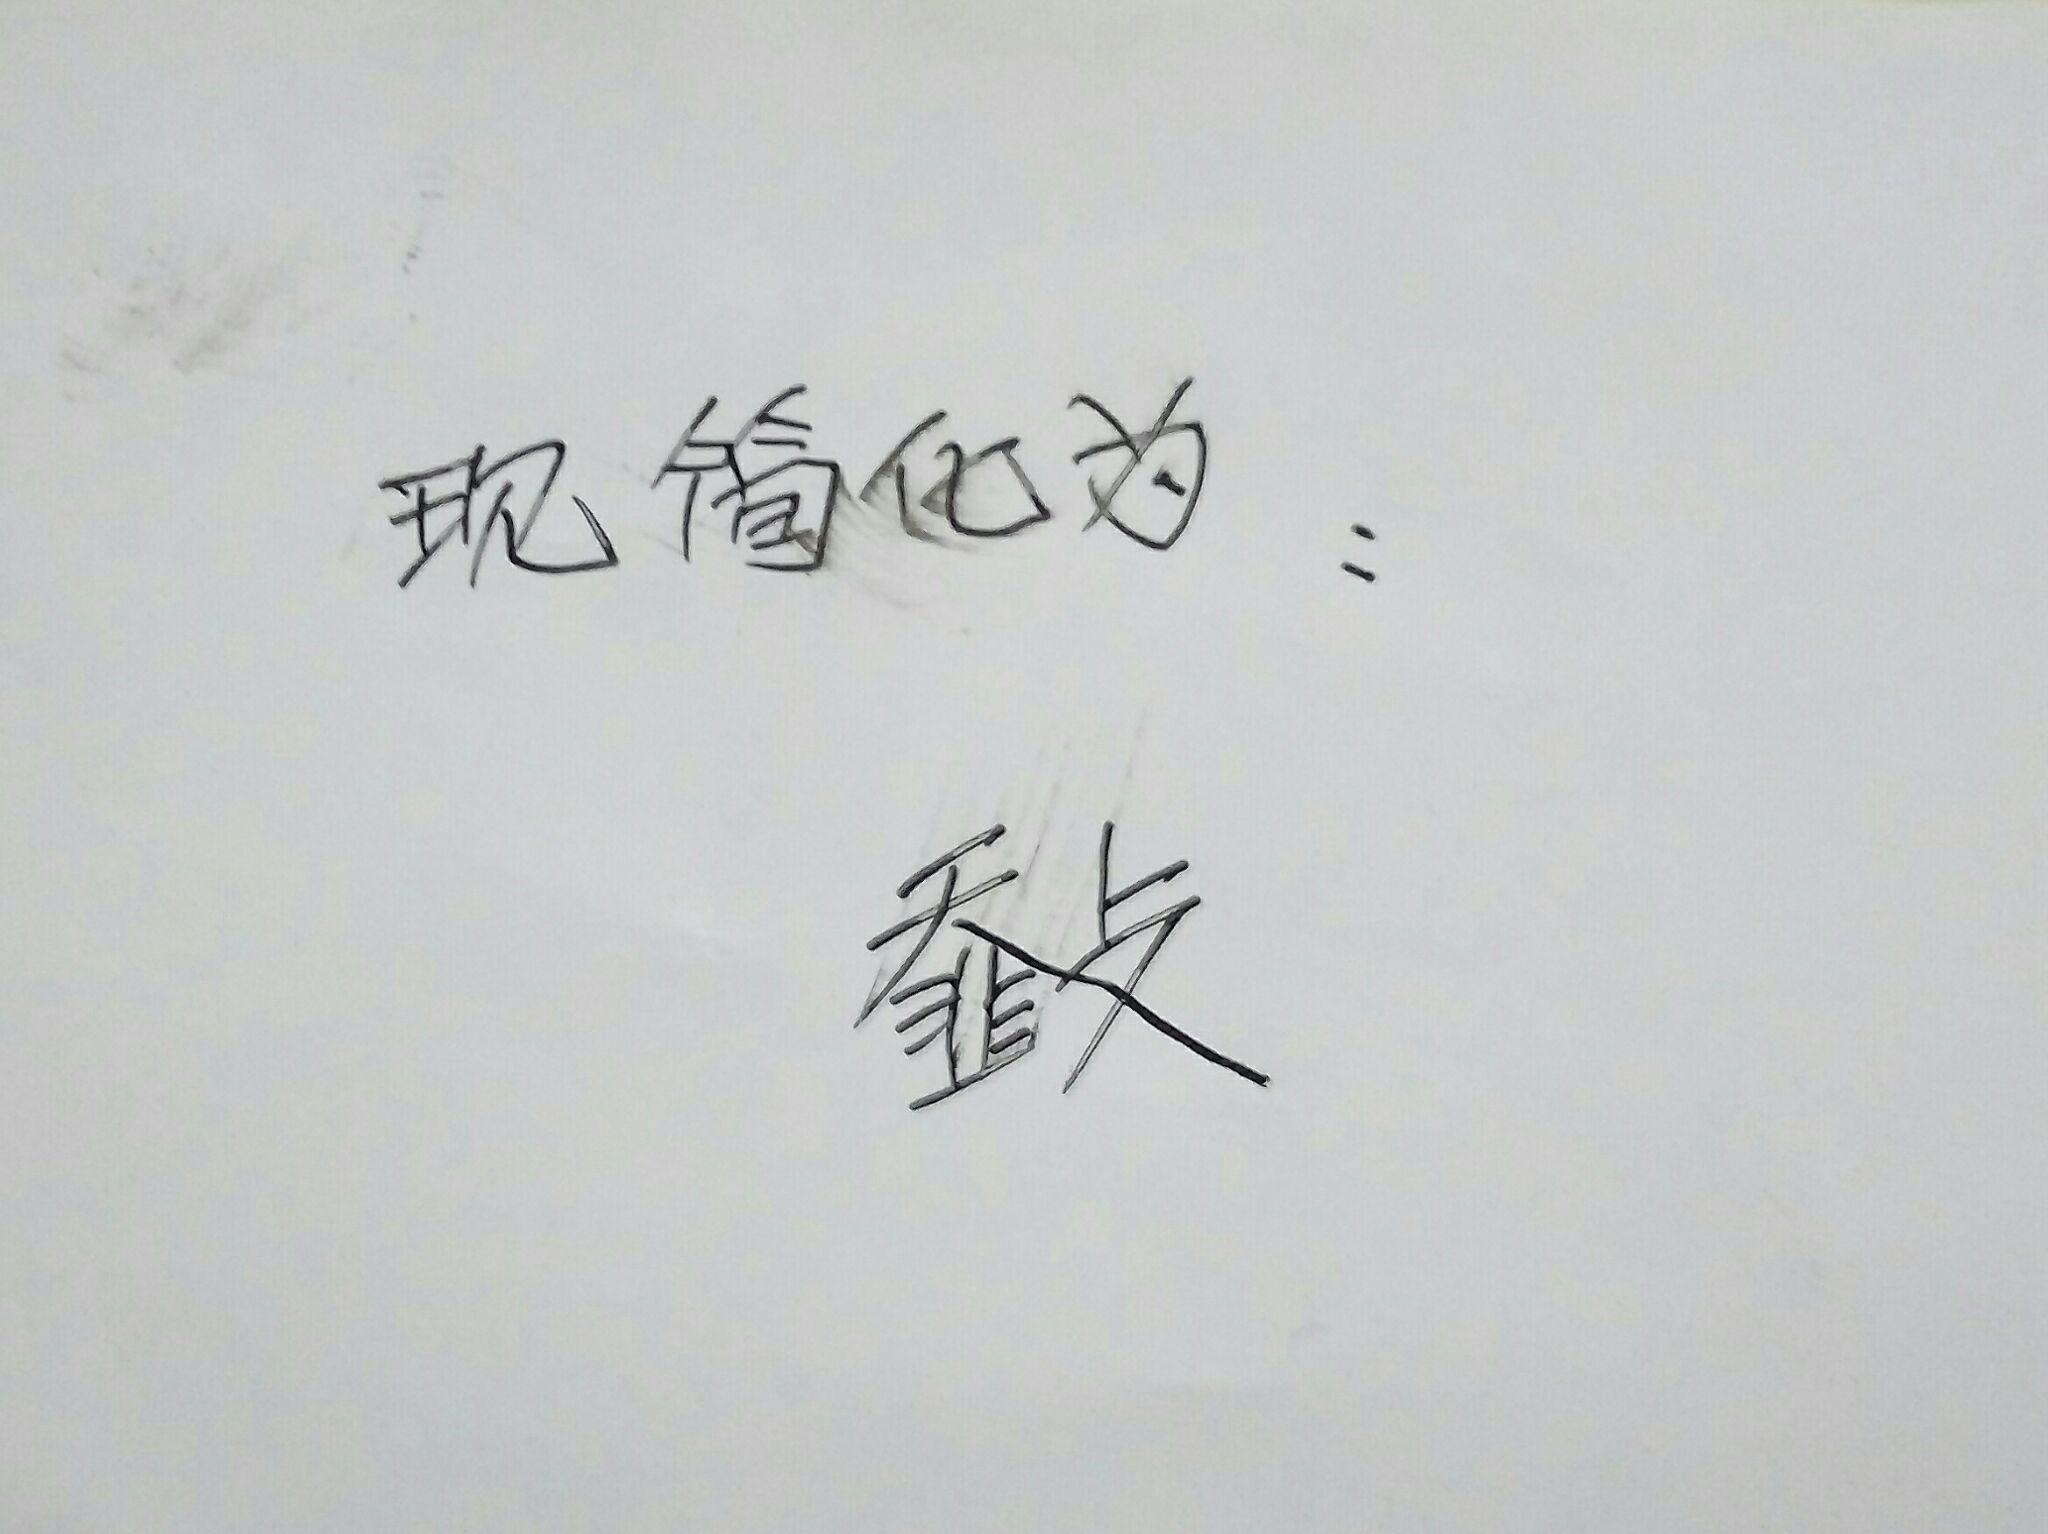 现简化为：